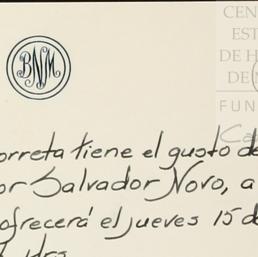 CEN
EST
DE H
DE
FUN
Ca
BNM
orreta tiene el gusto de
or Salvador Novo, a
ofrecerá el jueves 15 d
hrs.